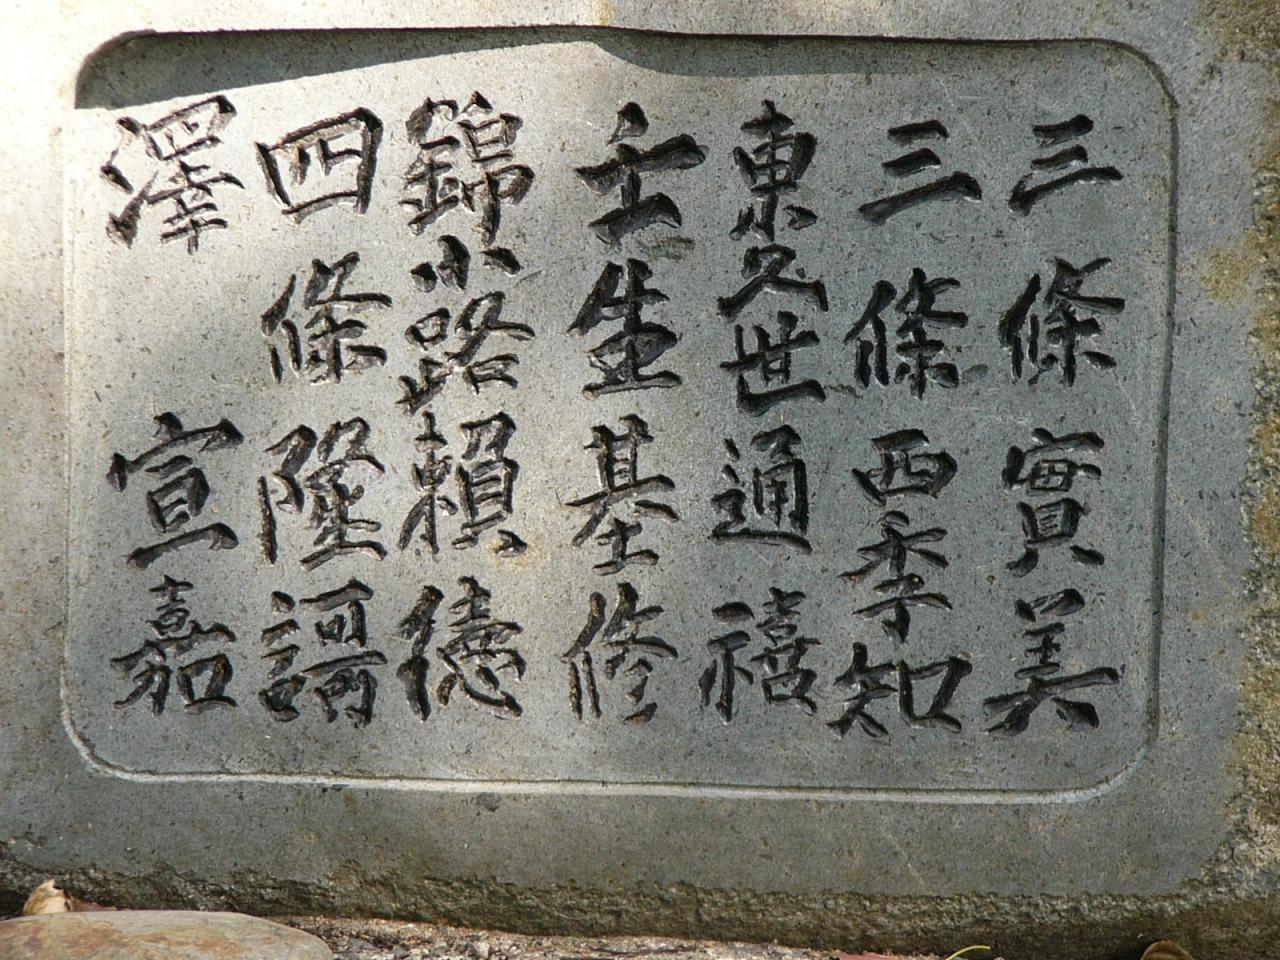 三條實美
三條西季知
東久世通禧
壬生基修
錦小路賴德
四條隆謌
澤宣嘉